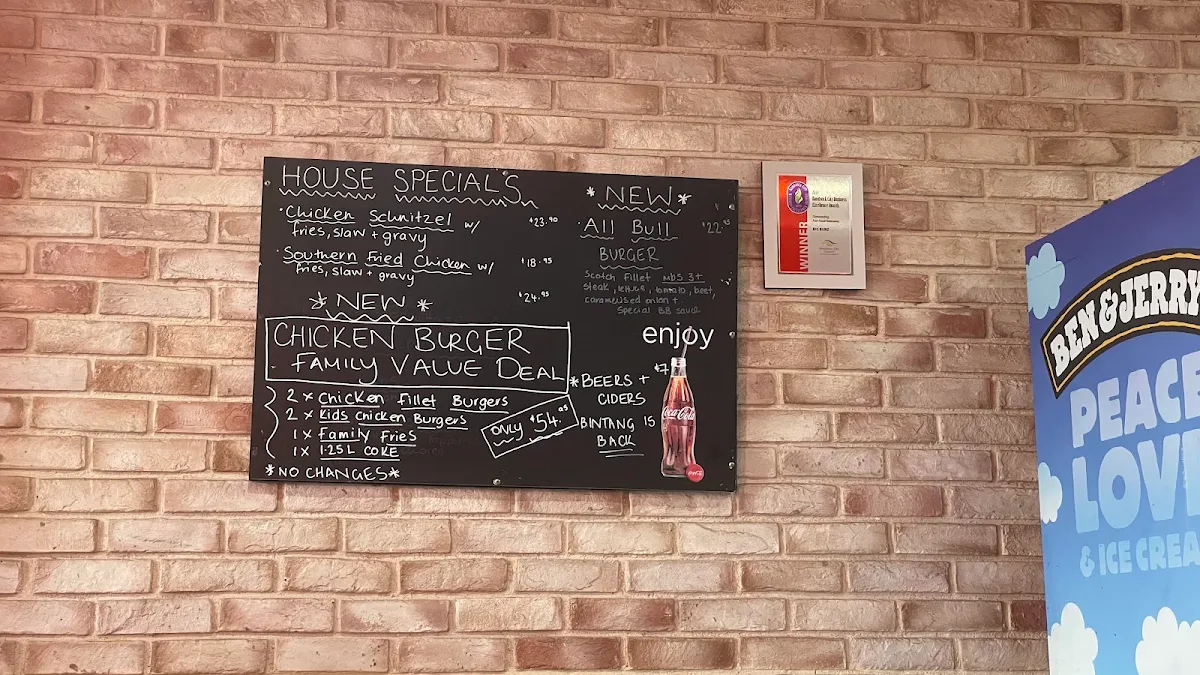 HOUSE SPECIAL'S
Chicken Schnitzel w/ $23.90
fries, slaw + gravy
Southern Fried Chicken w/ $18.95
fries, slaw + gravy
$24.95
* NEW *
CHICKEN BURGER
- FAMILY VALUE DEAL
2 x Chicken Fillet Burgers
2 x Kids Chicken Burgers
1 x Family Fries
1 x 1.25L COKE
*NO CHANGES*
ONLY $54.95
* NEW *
All Bull $22.95
BURGER
Scotch Fillet MBS 3+
steak, lettuce, tomato, beet,
caramelised onion +
Special BB sauce
enjoy
*BEERS + $7
CIDERS
BINTANG IS
BACK
Coca-Cola
WINNER
BEN & JERRY'
PEACE
LOV
& ICE CREA